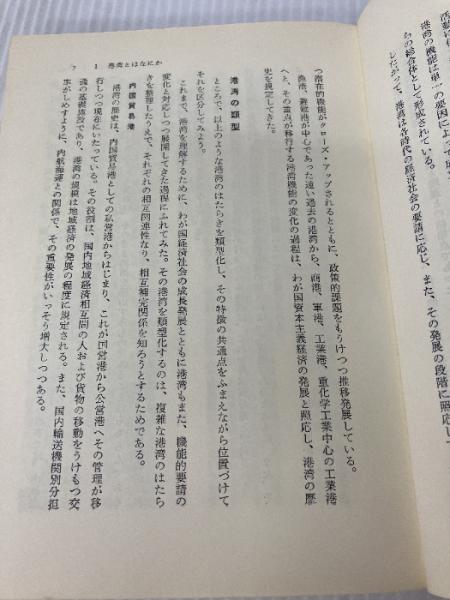 港湾の機能は単一の要因によって
らの総合体として形成されている。
したがって、港湾は各時代の経済社会の要請に応じ、また、その発展の段階に照応し
つ潜在的機能がクローズ・アップされるとともに、政策的課題をもうけつつ推移発展している。
漁港、避難港が中心であった遠い過去の港湾から、商港、軍港、工業港、重化学工業中心の工業港
へと、その重点が移行する港湾機能の変化の過程は、わが国資本主義経済の発展と照応し、港湾の歴
史を規定してきた。
港湾の類型
ところで、以上のような港湾のはたらきを類型化し、その特徴の共通点をふまえながら位置づけて
それを区分してみよう。
これまで、港湾を理解するために、わが国経済社会の成長発展とともに港湾もまた、機能的要請の
変化と対応しつつ展開してきた過程にふれてみた。その港湾を類型化するのは、複雑な港湾のはたら
きを整理したうえで、それぞれの相互関連性なり、相互補完関係を知ろうとするためである。
内国貿易港
港湾の歴史は、内国貿易港としての私営港からはじまり、これが国営港から公営港へその管理が移
行しつつ現在にいたっている。その役割は、国内地域経済相互間の人および貨物の移動をうけもつ交
通の基礎施設であり、港湾の規模は地域経済の発展の程度に規定される。また、国内輸送機関別分担
率がしめすように、内航海運との関係で、その重要性がいっそう増大しつつある。
7 1 港湾とはなにか